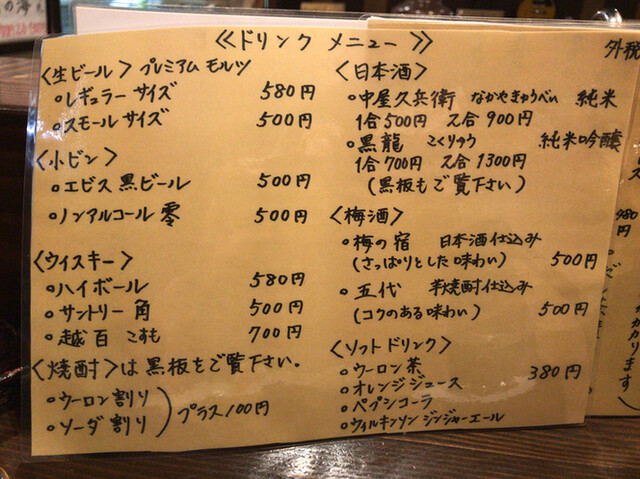 ≪ドリンク メニュー≫
〈生ビール〉プレミアム モルツ
○レギュラー サイズ 580円
○スモール サイズ 500円
〈小ビン〉
○エビス 黒ビール 500円
○ノンアルコール 零 500円
〈ウィスキー〉
○ハイボール 580円
○サントリー 角 500円
○越百 こすも 700円
〈焼酎〉は 黒板をご覧下さい。
○ウーロン割り
○ソーダ割り
プラス100円
〈日本酒〉
○中屋久兵衛 なかやきゅうべい 純米
1合500円 2合900円
○黒龍 こくりゅう 純米吟醸
1合700円 2合1300円
(黒板もご覧下さい)
〈梅酒〉
○梅の宿 日本酒仕込み
(さっぱりとした味わい) 500円
○五代 芋焼酎仕込み
(コクのある味わい) 500円
〈ソフトドリンク〉
○ウーロン茶 380円
○オレンジジュース
○ペプシコーラ
○ウィルキンソン ジンジャーエール
外税
980
円
かかります)
の海